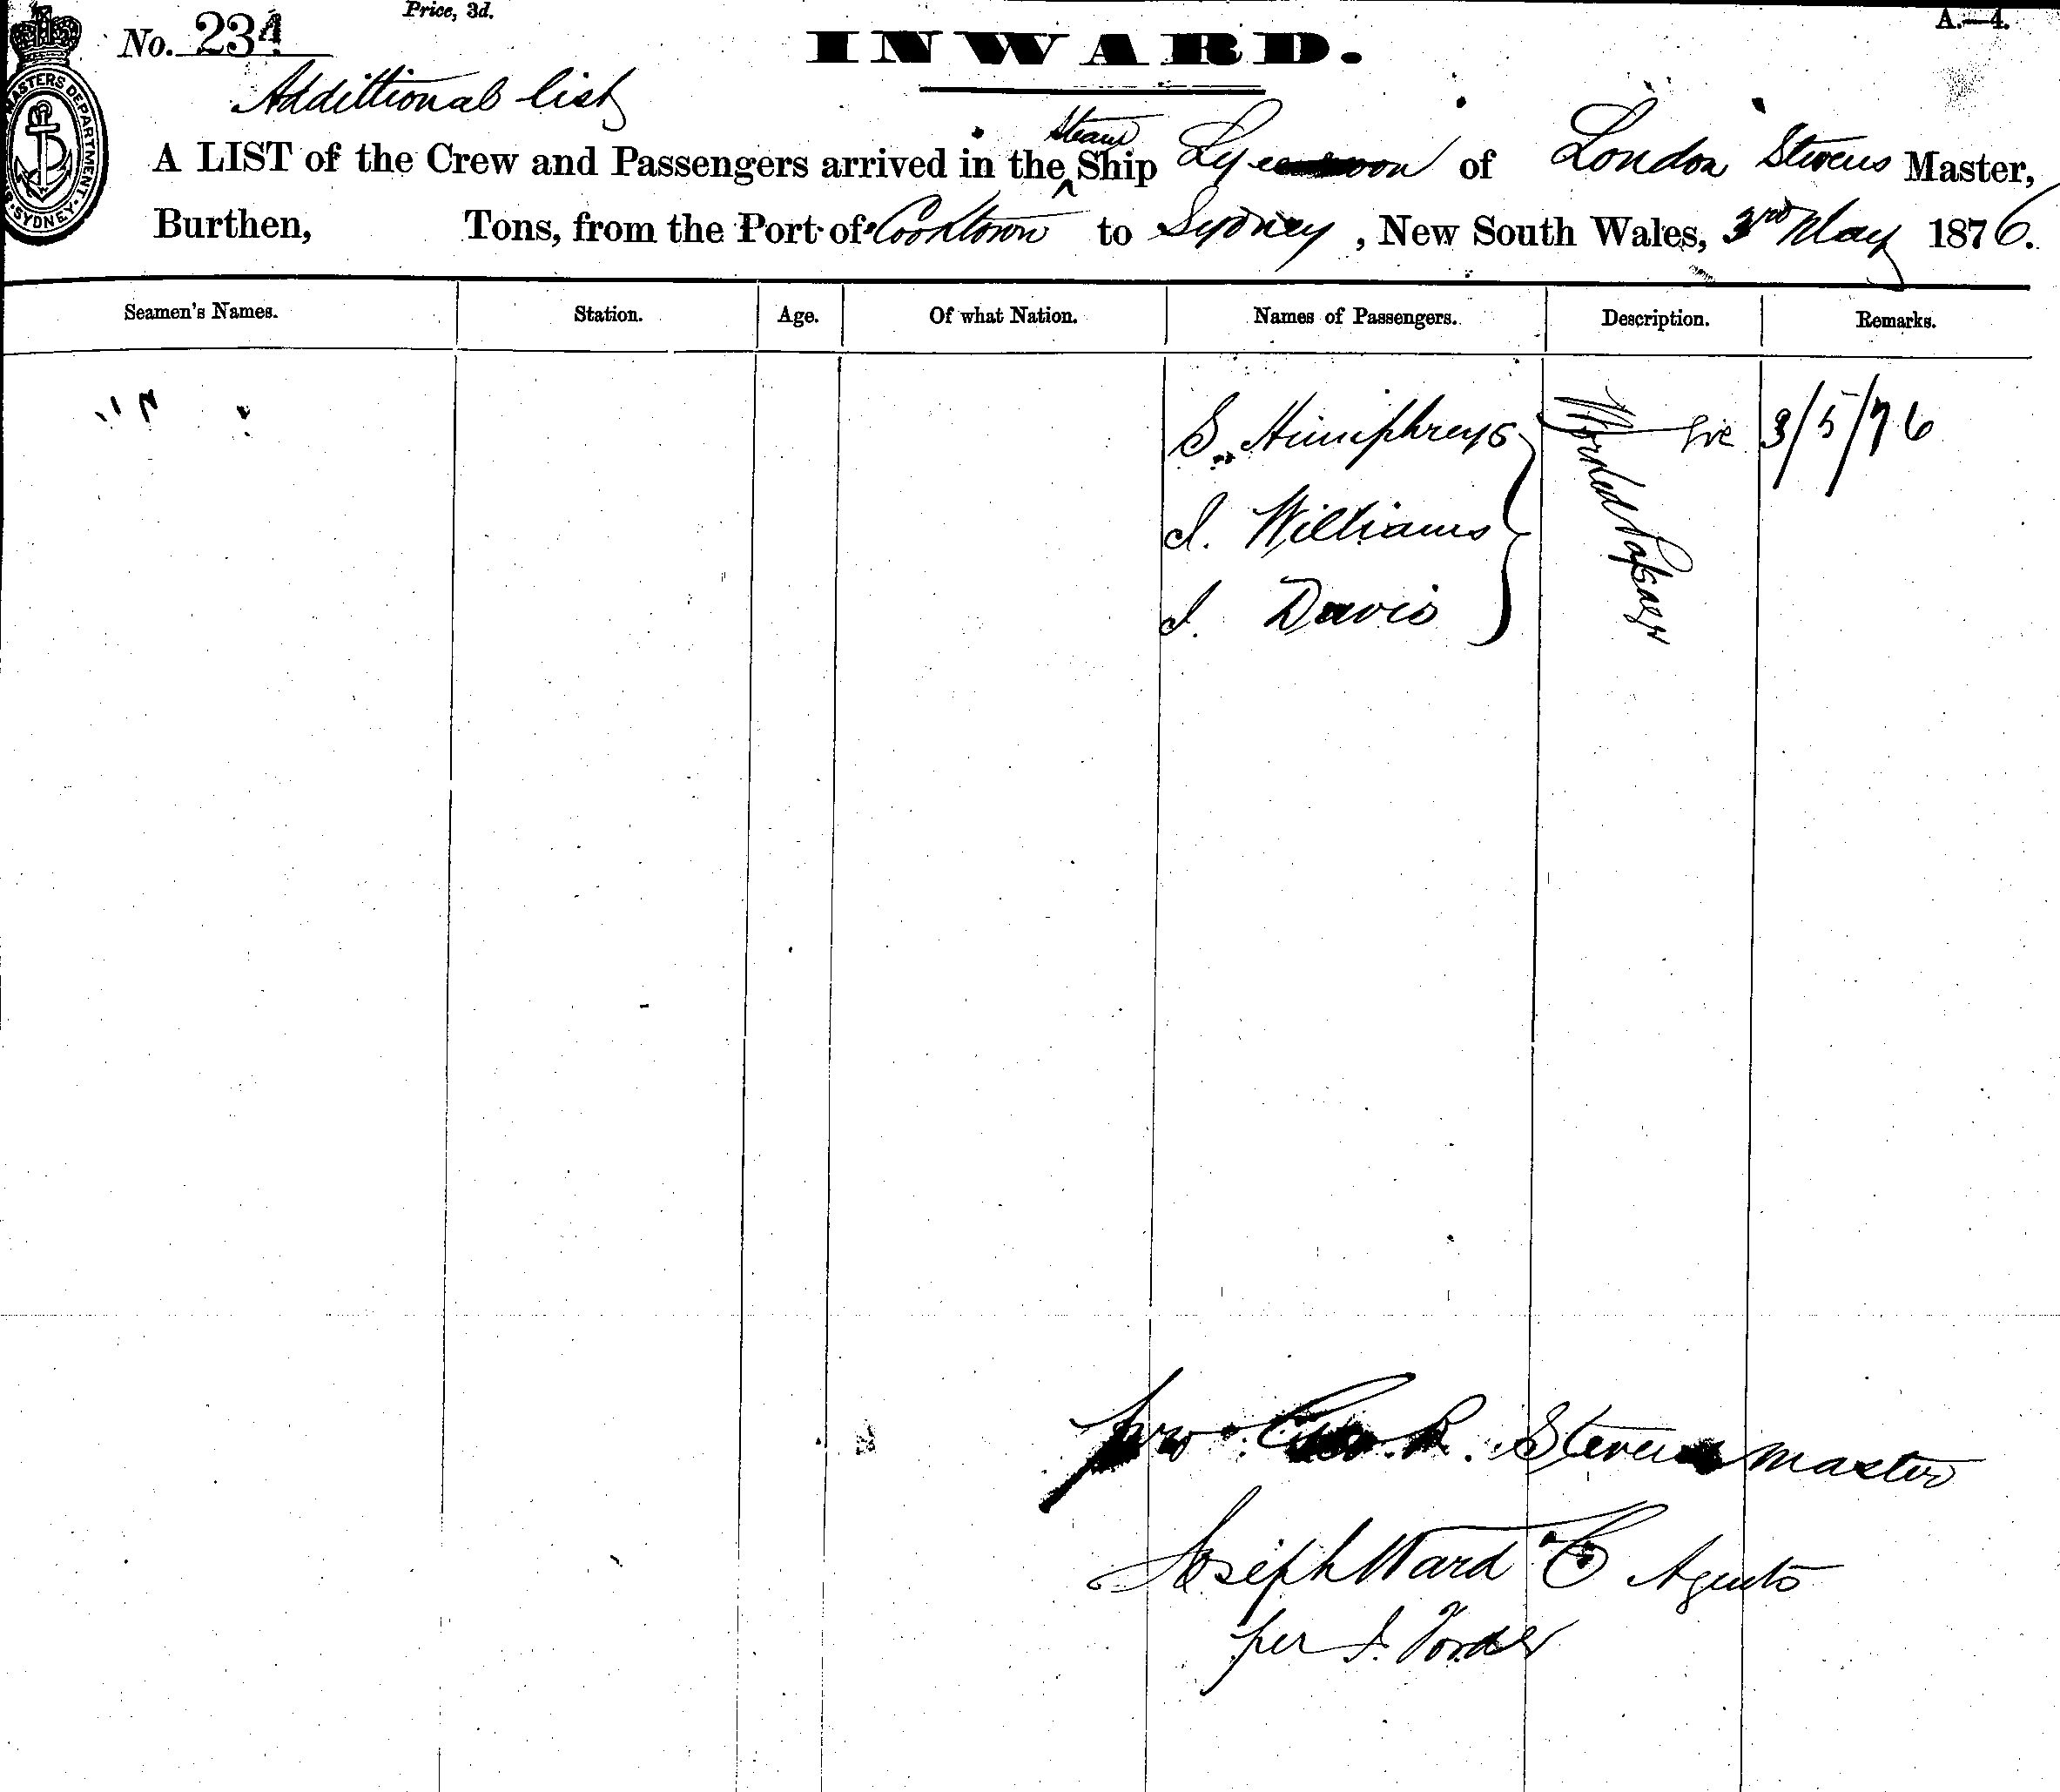 Price, 3d.
A.—4.
No. 234
INWARD.
MASTERS DEPARTMENT
SYDNEY
Addittional list
Steam
A LIST of the Crew and Passengers arrived in the ^ Ship of London Stevens Master,
Burthen, Tons, from the Port of Cooktown to Sydney, New South Wales, 3rd May 1876.
Seamen's Names. Station. Age. Of what Nation. Names of Passengers. Description. Remarks.
S. Humphreys 3/5/76
J. Williams
J. Davis
Worked Passage
pro R. Stevens master
Joseph Ward & Co Agents
per J.